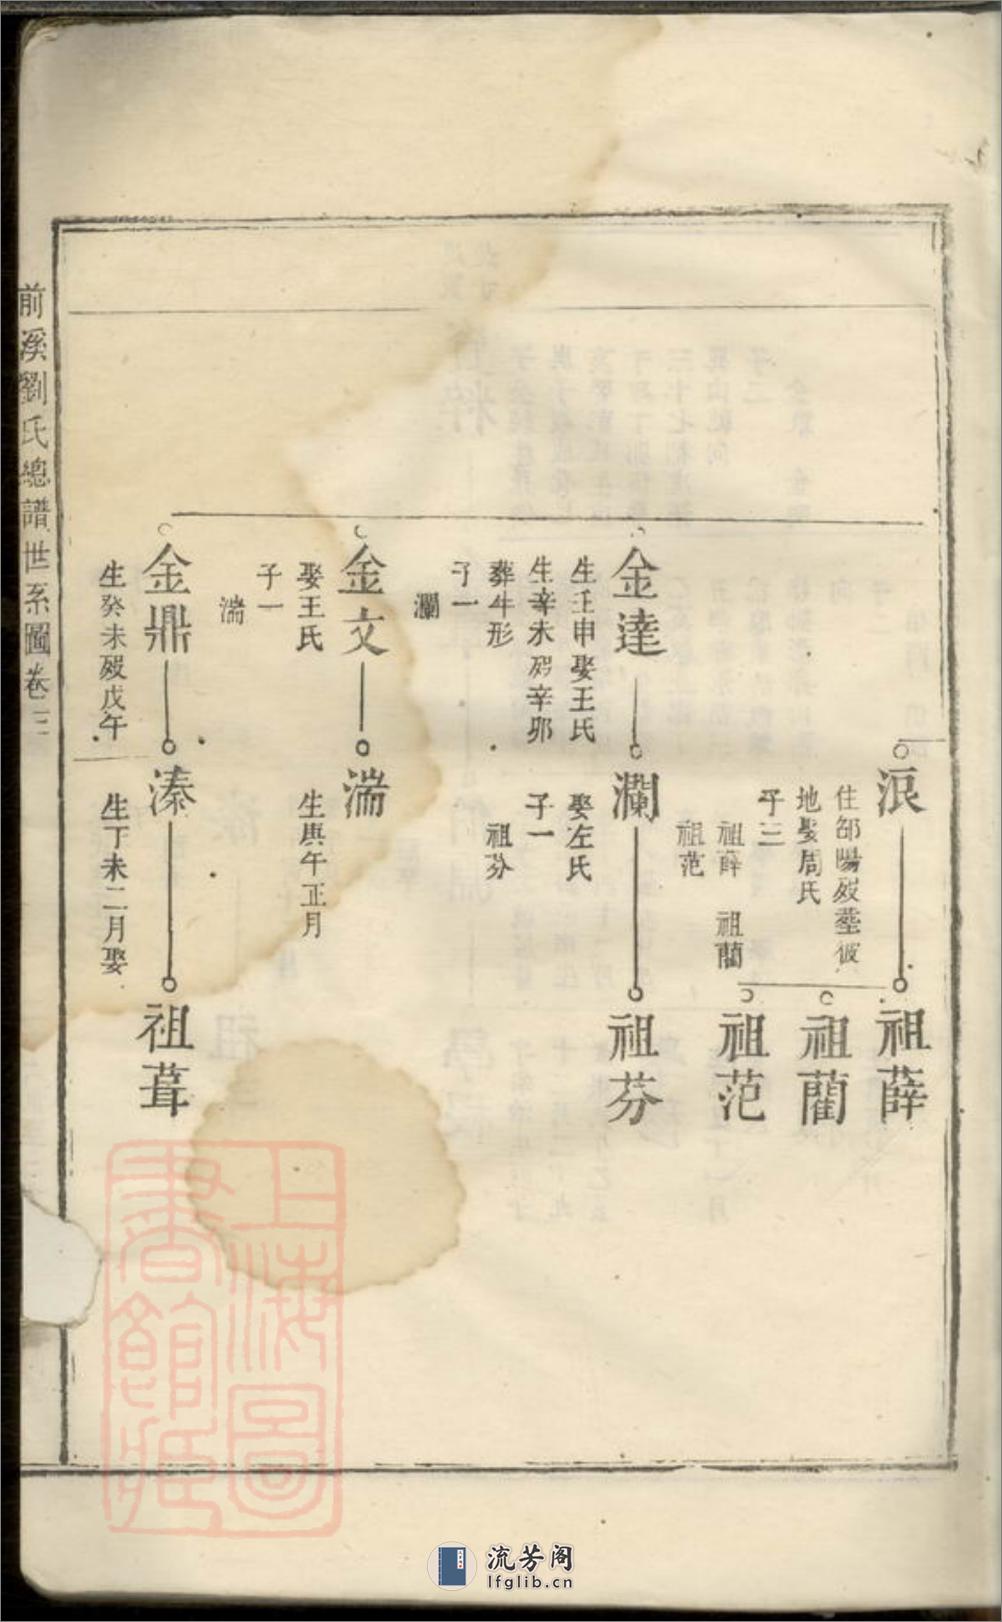 浪
住邵陽歿塟彼
地娶周氏
子三
祖薛 祖藺
祖范
祖薛
祖藺
祖范
金達
生壬申娶王氏
生辛未歿辛卯
葬牛形
子一
瀾
瀾
娶左氏
子一
祖芬
祖芬
金文
娶王氏
子一
湍
湍
生庚午正月
金鼎
生癸未歿戊午
溱
生丁未二月娶
祖葺
前溪劉氏總譜世系圖卷
上海圖
書館藏
流芳阁
lfglib.cn